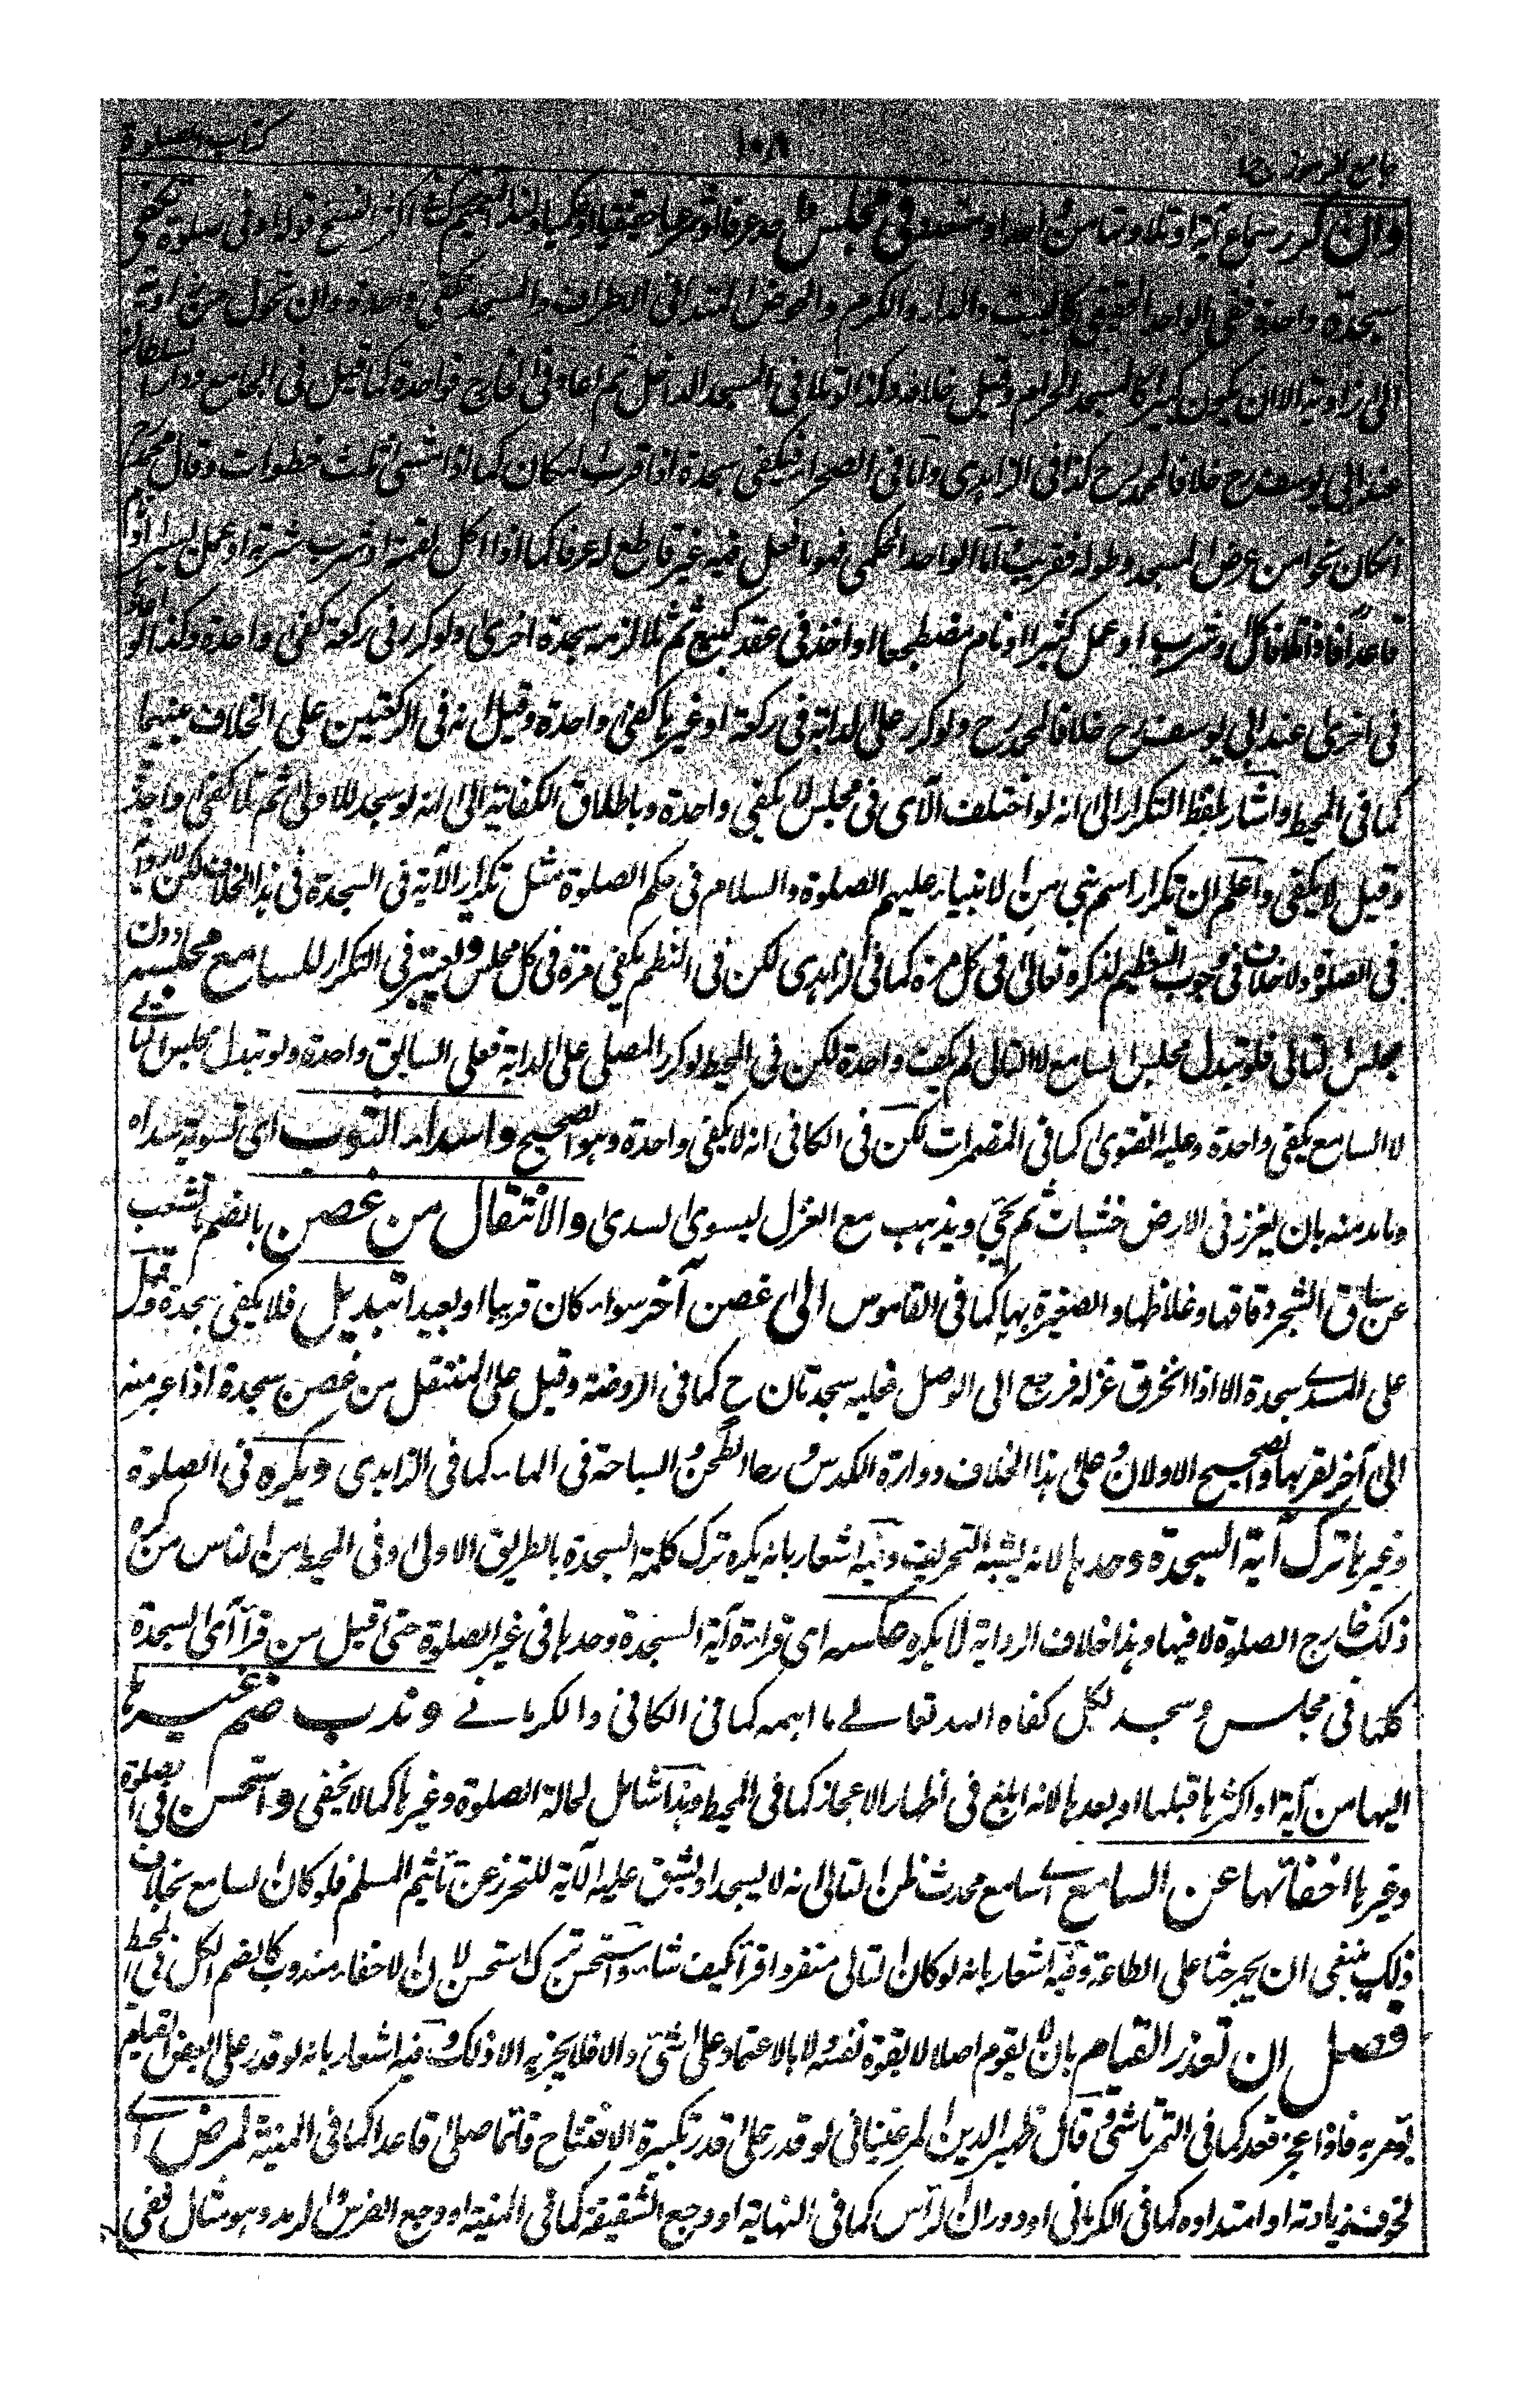 جامع الرموز ج١ ١٠٨ كتاب الصلوة
وان كرر سماع آية او تلاوتها من واحد او متعدد في مجلس واحد عرفا حقيقيا او حكميا كفى سجدة
سجدة واحدة ففي الواحد الحقيقي كالبيت والدار والكرم والحوض الممتد في الاطراف والمسجد تكفي واحدة وان تحول من زاوية
الى زاوية الا ان يكون كبيرا كالمسجد الحرام وقيل خلافه وكذا لو تلا في المسجد الداخل ثم اعاد في الخارج فواحدة كما قيل في الجامع ودار السلطان
عند ابي يوسف رح خلافا لمحمد رح كذا في الزاهدي واما في الصحراء فيكفي سجدة اذا قرب المكان كما اذا مشى ثلث خطوات وقال محمد رح
ان كان نحوا من عرض المسجد وطوله فقريب واما الواحد الحكمي فهو ما تخلل فيه غير قاطع له عرفا كما اذا اكل لقمة او شرب شربة او عمل يسيرا او نام
قاعدا فاذا تلا فاكل وشرب او عمل كثيرا او نام مضطجعا او اخذ في عقد كبيع ثم تلا لزمه سجدة اخرى ولو كرر في ركعة كفى واحدة وكذا لو اعاد
في اخرى عند ابي يوسف رح خلافا لمحمد رح ولو كرر على الدابة في ركعة او غيرها كفى واحدة وقيل انه في الركعتين على الخلاف بينهما
كما في المحيط واشار بلفظ التكرار الى انه لو اختلف الآي في مجلس لا يكفي واحدة وباطلاق الكفاية الى انه لو سجد للاولى ثم تلا كفى واحدة
وقيل لا يكفي واعلم ان تكرار اسم نبي من الانبياء عليهم الصلوة والسلام في حكم الصلوة مثل تكرار الآية في السجدة في هذا الخلاف لكن لا رواية
في الصلوة ولا خلاف في وجوب التعظيم لذكره تعالى في كل مرة كما في الزاهدي لكن في النظم يكفي مرة في كل مجلس ويعتبر في التكرار للسامع مجلسه دون
مجلس التالي فلو تبدل مجلس السامع لا التالي لم يكف واحدة لكن في المحيط لو كرر المصلي على الدابة فعلى السائق واحدة ولو تبدل مجلس التالي
لا السامع يكفي واحدة وعليه الفتوى كما في المضمرات لكن في الكافي انه لا يكفي واحدة وهو الصحيح واسداء الثوب اى تسوية سداه
وما مد منه بان يغرز في الارض خشبات ثم يجئ ويذهب مع الغزل ليسوى لسدى والانتقال من غصن بالضم ما تشعب
عن ساق الشجر دقاقها وغلاظها والصغيرة بهاء كما في القاموس الى غصن آخر سواء كان قريبا او بعيدا تبديل فلا يكفي سجدة وقيل
على المسدى سجدة الا اذا انخرق غزله فرجع الى الوصل فعليه سجدتان ح كما في الروضة وقيل على المنتقل من غصن سجدة اذا عبر منه
الى آخر لقربهما والصحيح الاولان وعلى هذا الخلاف دوارة الكدس ورحا الطحن والسباحة في الماء كما في الزاهدي ويكره في الصلوة
وغيرها ترك آية السجدة وحدها لانه يشبه التحريف وفيه اشعار بانه يكره ترك كلمة السجدة بالطريق الاولى وفي المحيط من الناس من كره
ذلك خارج الصلوة لا فيها وهذا خلاف الرواية لا يكره عكسه اى قراءة آية السجدة وحدها في غير الصلوة حتى قيل من قرأ آى السجدة
كلها في مجلس وسجد لكل كفاه الله تعالى ما اهمه كما في الكافي والكرماني وندب ضم غيرها
اليها من آية او اكثرها قبلها او بعدها لانه ابلغ في اظهار الاعجاز كما في المحيط وهذا شامل لحالة الصلوة وغيرها كما لا يخفى واستحسن في الصلوة
وغيرها اخفائها عن السامع اى سامع محدث ظن التالي انه لا يسجد او يشق عليه الآية للتحرز عن تأثيم المسلم فلو كان السامع بخلاف
ذلك ينبغي ان يجهر حثا على الطاعة وفيه اشعار بانه لو كان التالي منفردا قرأ كيف شاء واستحسن ترك استحسن لان الاخفاء مندوب كالضم الكل في المحيط
فصل ان تعذر القيام بان لا يقوم اصلا لا بقوة نفسه ولا بالاعتماد على شئ والا فلا يجزيه الا ذلك وفيه اشعار بانه لو قدر على بعض القيام
يؤمر به فاذا عجز قعد كما في التمرتاشي وقال ظهير الدين المرغيناني لو قدر على قدر تكبيرة الافتتاح قائما صلى قاعدا كما في المنية لمرض اى
لخوف زيادته او امتداده كما في الكرماني او دوران الرأس كما في النهاية او وجع الشقيقة كما في المنية او وجع الضرس والرمد وهو مثال نفى